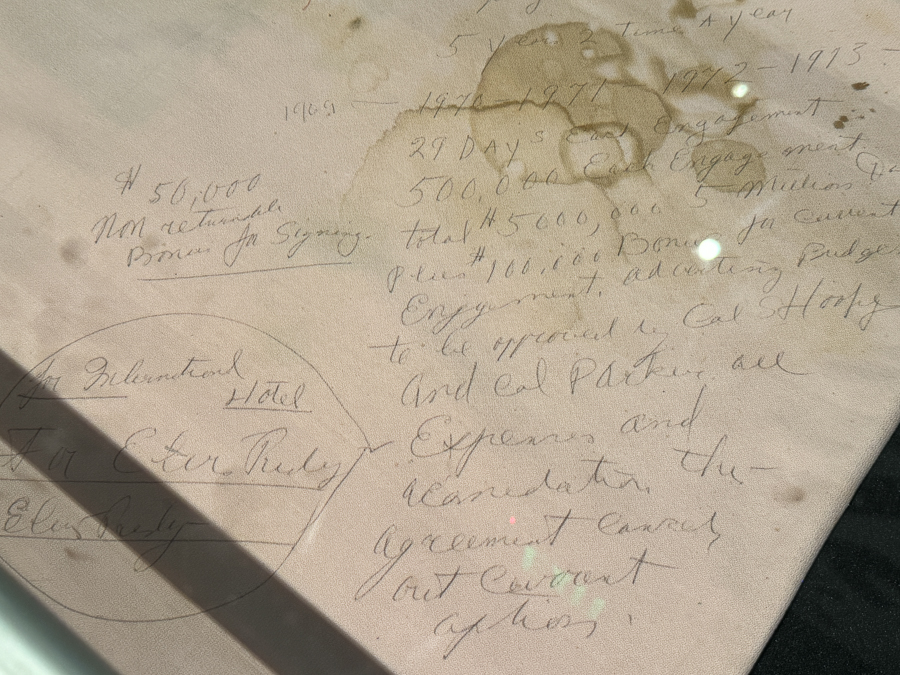 5 year 2 time A year
1969 — 1970 — 1971 — 1972 — 1973 —
29 DAYS Each Engagement
500,000 Each Engagement
total $5000,000 5 Million
plus $100,000 Bonus for current
Engagement. advertising Budget
to be approved by Col
and Col Parker all
Expenses and
the
agreement cancels
out current
option.
$50,000
Non returnable
Bonus for Signing.
for International
Hotel
For Elvis Presley
Elvis Presley